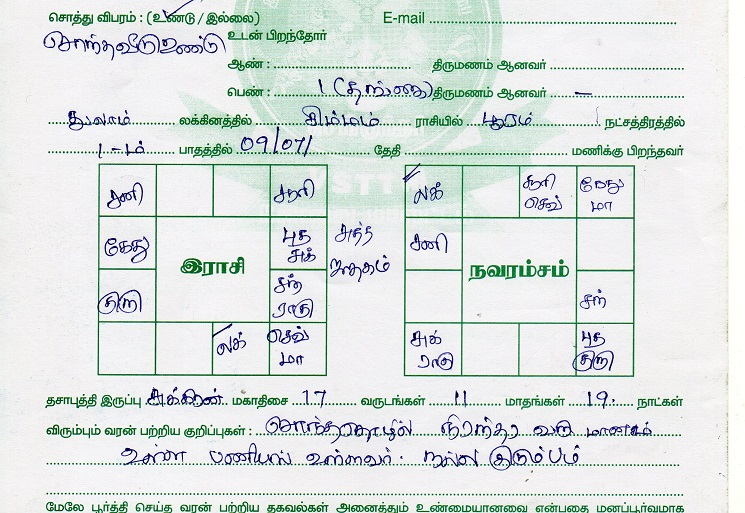 சொத்து விபரம் : (உண்டு / இல்லை) E-mail
சொந்தவீடு உண்டு உடன் பிறந்தோர்
ஆண் : திருமணம் ஆனவர் :
பெண் : 1 (தங்கை) திருமணம் ஆனவர் –
துலாம் லக்கினத்தில் சிம்மம் ராசியில் பூரம் நட்சத்திரத்தில்
1-ம் பாதத்தில் 09/07/ தேதி மணிக்கு பிறந்தவர்
சனி சூரி
கேது புத சுக்
இராசி
குரு சந் ராகு
லக் செவ் மா
அத்த ஜாதகம்
லக் சூரி செவ் கேது மா
சனி
நவரம்சம்
சந்
சுக் ராகு புத குரு
தசாபுத்தி இருப்பு சுக்கிரன் மகாதிசை 17 வருடங்கள் 11 மாதங்கள் 19 நாட்கள்
விரும்பும் வரன் பற்றிய குறிப்புகள் : சொந்ததொழில் நிரந்தர வருமானம்
உள்ள பணியில் உள்ளவர். நல்ல குடும்பம்
மேலே பூர்த்தி செய்த வரன் பற்றிய தகவல்கள் அனைத்தும் உண்மையானவை என்பதை மனப்பூர்வமாக